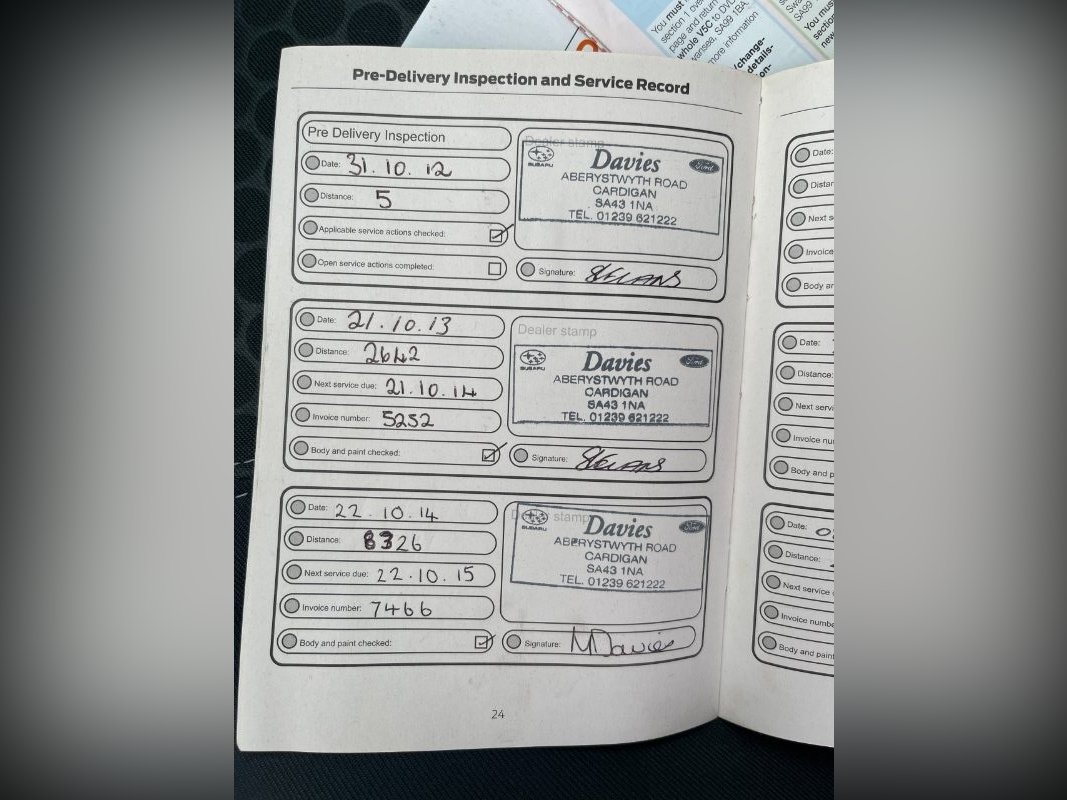 You must
section
page and return
whole V5C to DVL
SA99 1BA.
more information
/change-
details-
on-
SA99
You must
section
new
Pre-Delivery Inspection and Service Record
Pre Delivery Inspection
Date: 31.10.12
Distance: 5
Applicable service actions checked:
Open service actions completed:
Dealer stamp
SUBARU
Davies
Ford
ABERYSTWYTH ROAD
CARDIGAN
SA43 1NA
TEL. 01239 621222
Signature:
Date: 21.10.13
Distance: 2642
Next service due: 21.10.14
Invoice number: 5252
Body and paint checked:
Dealer stamp
SUBARU
Davies
Ford
ABERYSTWYTH ROAD
CARDIGAN
SA43 1NA
TEL. 01239 621222
Signature:
Date: 22.10.14
Distance: 8326
Next service due: 22.10.15
Invoice number: 7466
Body and paint checked:
Dealer stamp
SUBARU
Davies
Ford
ABERYSTWYTH ROAD
CARDIGAN
SA43 1NA
TEL. 01239 621222
Signature: M Davies
24
Date:
Distan
Next s
Invoice
Body ar
Date:
Distance:
Next servi
Invoice nu
Body and p
Date:
Distance:
Next service
Invoice numbe
Body and paint